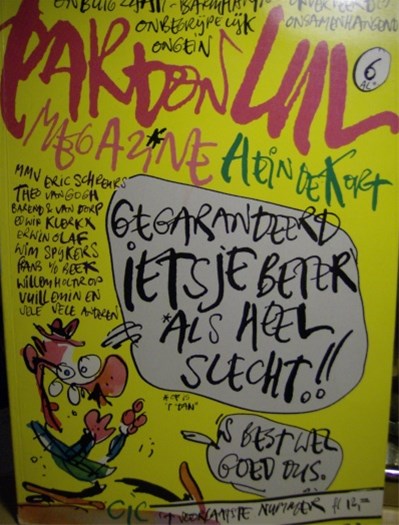 ONBUIGZAAM - BARMHARTIG
ONBEGRIJPELIJK ONSAMENHANGEND
ONGEIN
PARDON LUL
6
MEGAZ*NE HEIN DE KORT
MMV ERIC SCHREURS
THEO VAN GOGH
BAREND & VAN DORP
EDWIN KLERKX
ERWIN OLAF
WIM SPIJKERS
HANS V/D BEEK
WILLEM HOLTROP
VUILLEMIN EN
VELE VELE ANDEREN
GEGARANDEERD
IETSJE BETER
*ALS HEEL
SLECHT.!!
'S BEST WEL
GOED DUS.
CIC VOORLAATSTE NUMMER